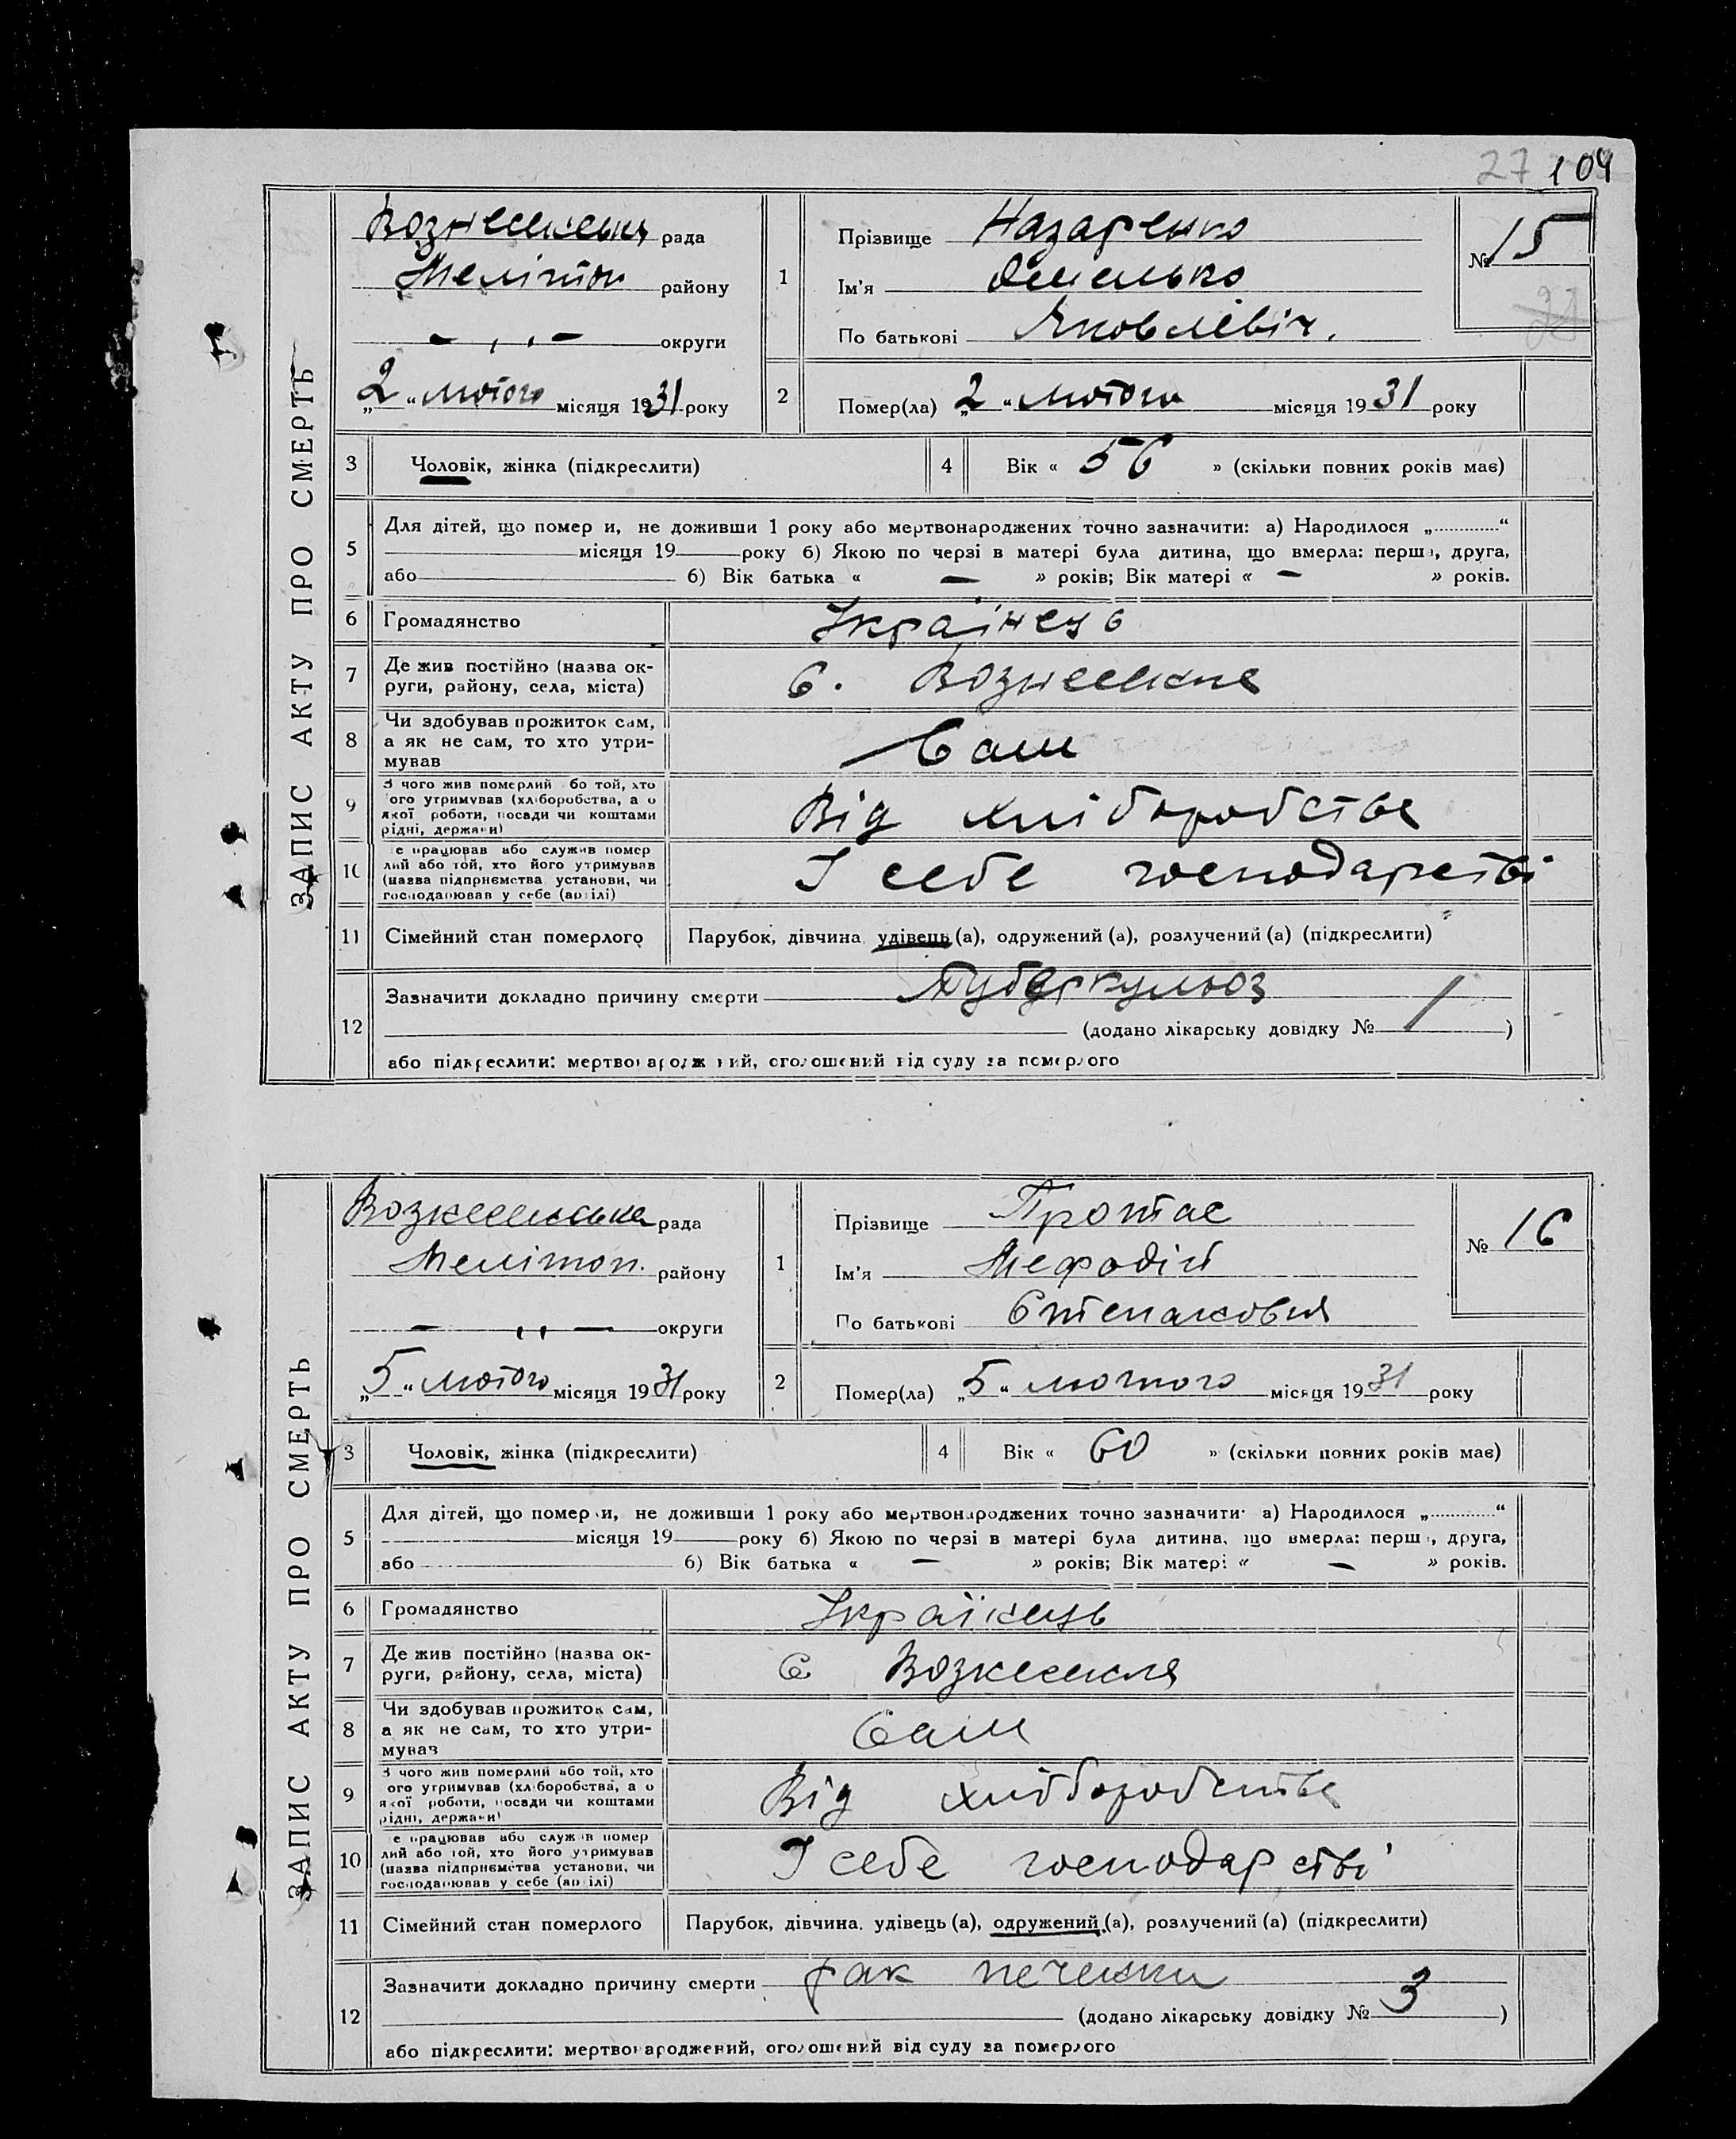 27 104
ЗАПИС АКТУ ПРО СМЕРТЬ
Вознесенська рада
Меліton району
— „ — округи
„2“ лютого місяця 1931 року
1
Прізвище Назаренко
Ім'я Омелько
По батькові Яковлевіч.
№ 15
2
Помер(ла) „2“ лютого місяця 1931 року
3 Чоловік, жінка (підкреслити)
4 Вік « 56 » (скільки повних років має)
5
Для дітей, що помер и, не доживши 1 року або мертвонароджених точно зазначити: а) Народилося „ “
місяця 19 року б) Якою по черзі в матері була дитина, що вмерла: перша, друга,
або б) Вік батька « — » років; Вік матері « — » років.
6 Громадянство Українець
7 Де жив постійно (назва ок-
руги, району, села, міста)
С. Вознесенка
8 Чи здобував прожиток сам,
а як не сам, то хто утри-
мував
Сам
9 З чого жив померлий або той, хто
ого утримував (хліборобства, а о
якої роботи, посади чи коштами
рідні, держави)
Від хліборобства
10 е працював або служив помер
лий або той, хто його утримував
(назва підприємства установи, чи
господарював у себе (артілі)
У себе господарстві
11 Сімейний стан померлого Парубок, дівчина, удівець (а), одружений (а), розлучений (а) (підкреслити)
12 Зазначити докладно причину смерти Туберкульоз
(додано лікарську довідку № /)
або підкреслити: мертвонароджений, оголошений від суду за померлого
ЗАПИС АКТУ ПРО СМЕРТЬ
Вознесенська рада
Мелітоп. району
— „ — округи
„5“ лютого місяця 1931 року
1
Прізвище Протас
Ім'я Мефодій
По батькові Степановия
№ 16
2
Помер(ла) „5“ лютого місяця 1931 року
3 Чоловік, жінка (підкреслити)
4 Вік « 60 » (скільки повних років має)
5
Для дітей, що помер и, не доживши 1 року або мертвонароджених точно зазначити: а) Народилося „ “
місяця 19 року б) Якою по черзі в матері була дитина, що вмерла: перша, друга,
або б) Вік батька « — » років; Вік матері « — » років.
6 Громадянство Українець
7 Де жив постійно (назва ок-
руги, району, села, міста)
С Вознесенка
8 Чи здобував прожиток сам,
а як не сам, то хто утри-
мував
Сам
9 З чого жив померлий або той, хто
ого утримував (хліборобства, а о
якої роботи, посади чи коштами
рідні, держави)
Від хліборобства
10 е працював або служив помер
лий або той, хто його утримував
(назва підприємства установи, чи
господарював у себе (артілі)
У себе господарстві
11 Сімейний стан померлого Парубок, дівчина, удівець (а), одружений (а), розлучений (а) (підкреслити)
12 Зазначити докладно причину смерти рак печенки
(додано лікарську довідку № 3)
або підкреслити: мертвонароджений, оголошений від суду за померлого